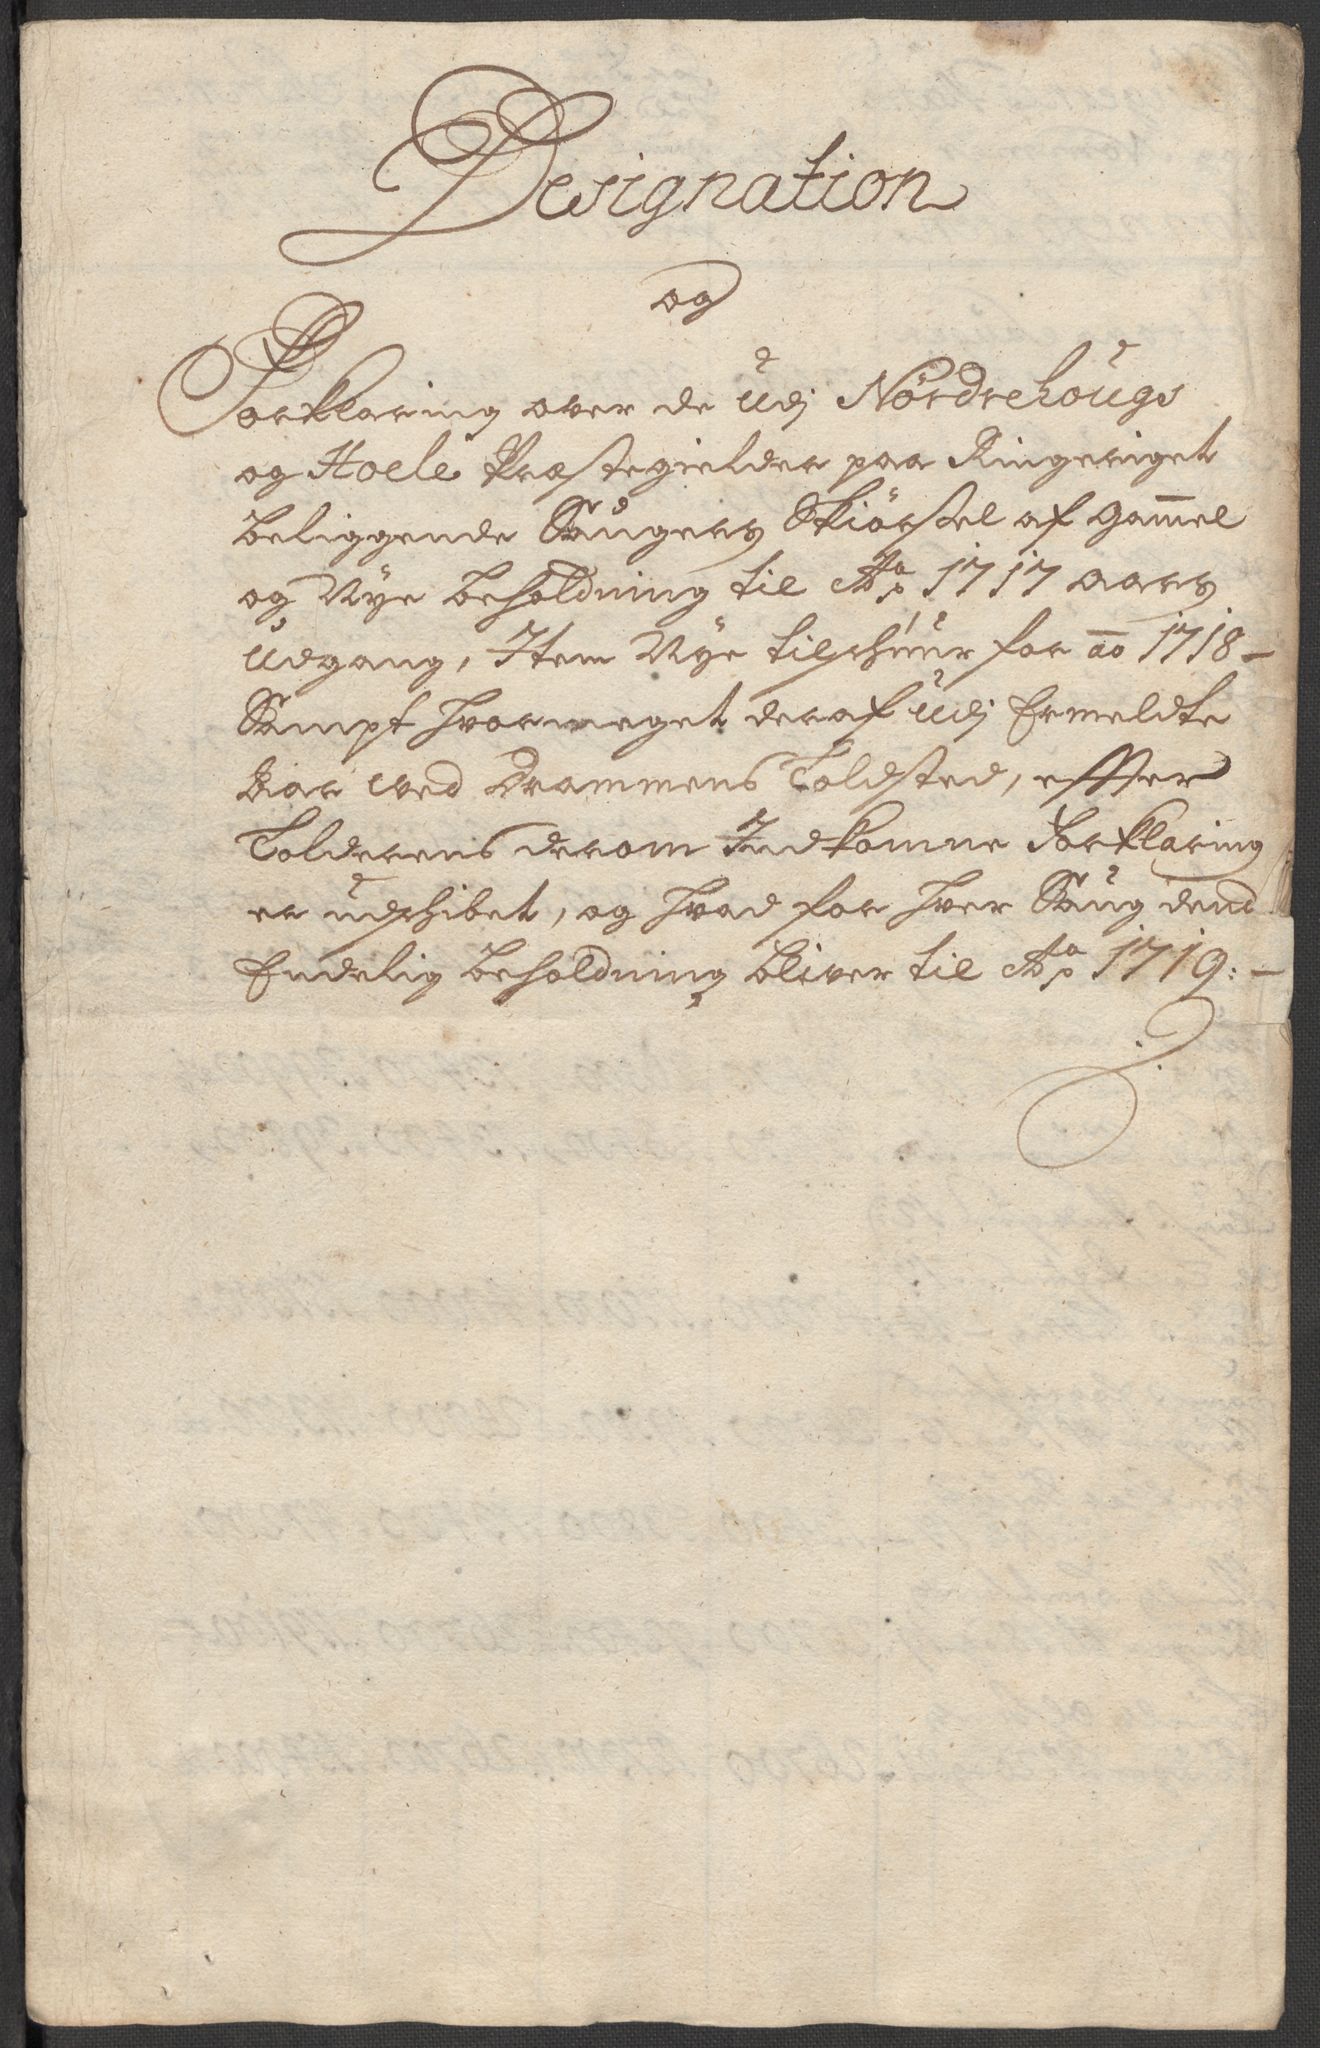 Designation
og
Forklaring over de Udj Nordrehougs
og Hoele Præstegielder paa Ringeriget
beliggende Saugers Skiørsel af gam̅el
og Nye beholdning til Ao 1717 aars
Udgang, Item Nye tilschuur for a̅o 1718 –
Sampt hvormeget deraf Udj Ermeldte
Aar ved Drammens Toldsted, effter
Tolderens derom Indkomne Forklaring
er udschibet, og hvad for hver Saug dend
Endelig beholdning bliver til Ao 1719: –